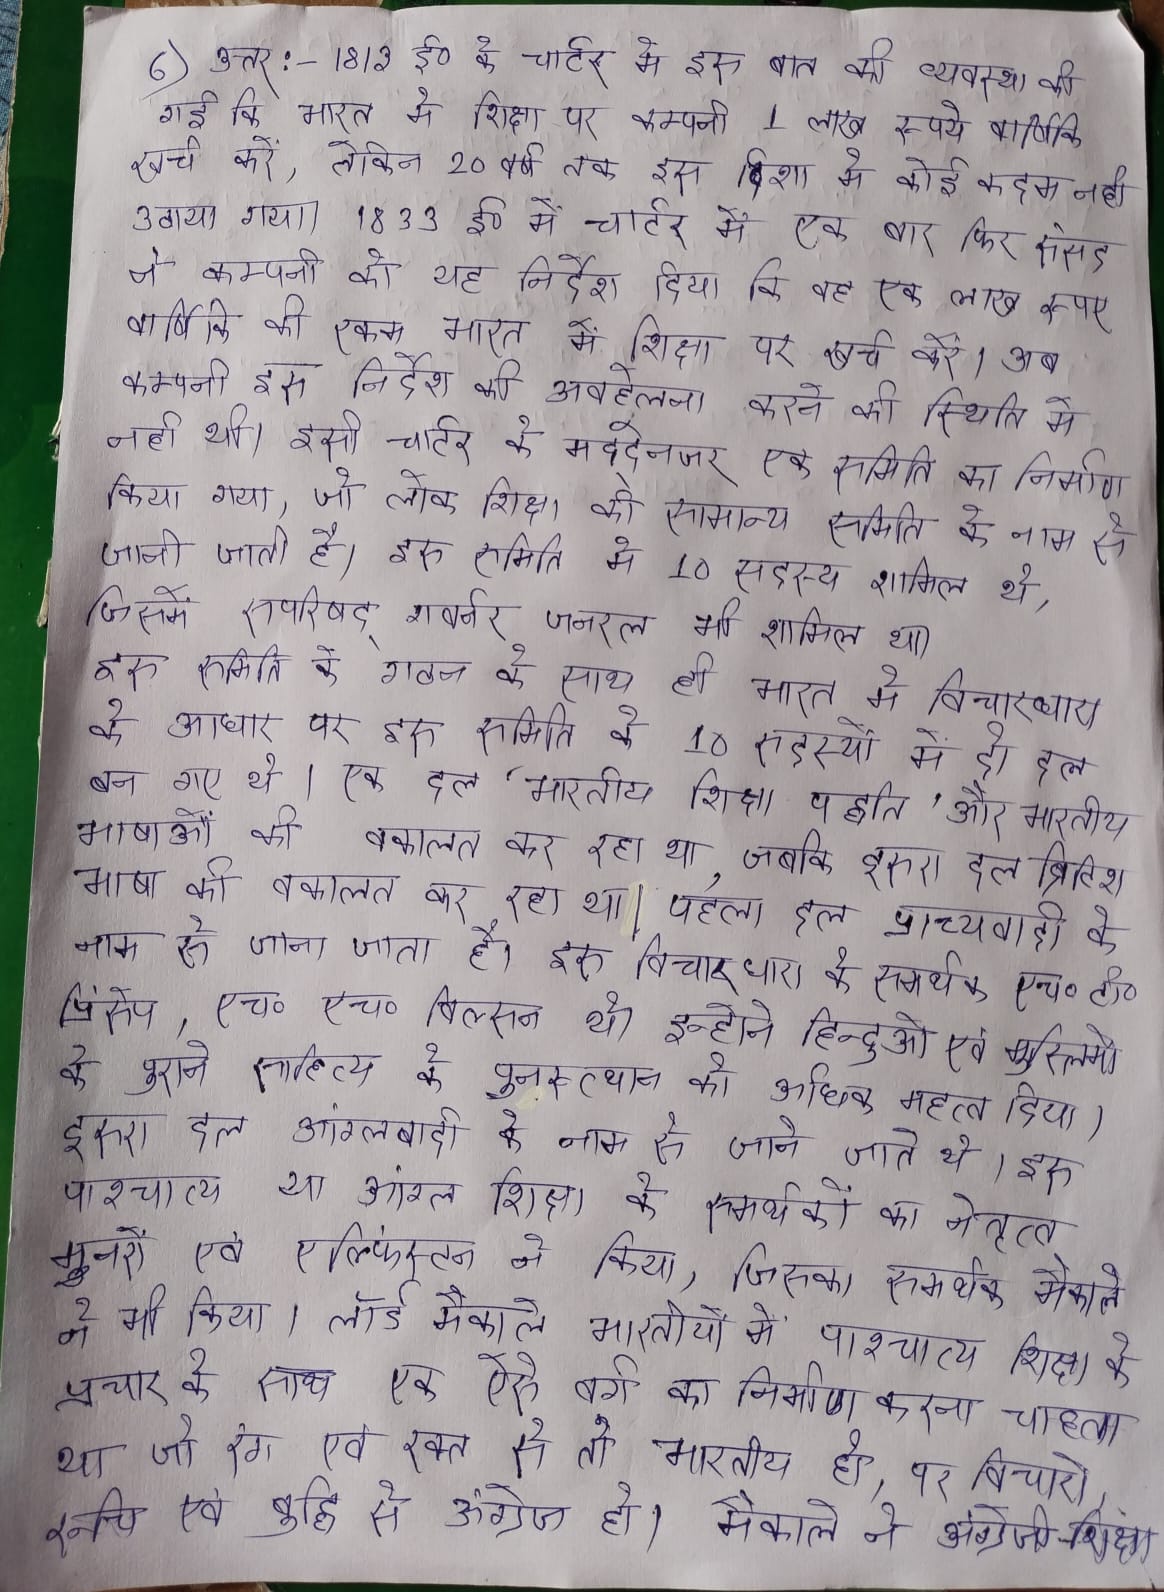 6) उत्तर :- 1813 ई० के चार्टर मे इस बात की व्यवस्था की
गई कि भारत मे शिक्षा पर कम्पनी 1 लाख रूपये वार्षिक
खर्च करें, लेकिन 20 वर्ष तक इस दिशा मे कोई कदम नही
उठाया गया। 1833 ई० में चार्टर में एक बार फिर संसद
ने कम्पनी को यह निर्देश दिया कि वह एक लाख रूपए
वार्षिक की रकम भारत में शिक्षा पर खर्च करें। अब
कम्पनी इस निर्देश की अवहेलना करने की स्थिति मे
नही थी। इसी चार्टर के मद्देनजर एक समिति का निर्माण
किया गया, जो लोक शिक्षा की सामान्य समिति के नाम से
जानी जाती है। इस समिति मे 10 सदस्य शामिल थे,
जिसमें सपरिषद् गवर्नर जनरल भी शामिल था।
इस समिति के गठन के साथ ही भारत मे विचारधारा
के आधार पर इस समिति के 10 सदस्यों में दो दल
बन गए थे। एक दल 'भारतीय शिक्षा पद्धति' और भारतीय
भाषाओं की वकालत कर रहा था, जबकि दूसरा दल ब्रिटिश
भाषा की वकालत कर रहा था। पहला दल प्राच्यवादी के
नाम से जाना जाता है। इस विचारधारा के समर्थक एच० टी०
प्रिंसेप, एच० एच० विल्सन थे। इन्होने हिन्दुओ एवं मुस्लिमो
के पुराने साहित्य के पुनरूत्थान को अधिक महत्व दिया।
दूसरा दल आंग्लवादी के नाम से जाने जाते थे। इस
पाश्चात्य या आंग्ल शिक्षा के समर्थकों का नेतृत्व
मुनरो एवं एलिफंस्टन ने किया, जिसका समर्थक मैकाले
ने भी किया। लॉर्ड मैकाले भारतीयों में पाश्चात्य शिक्षा के
प्रचार के साथ एक ऐसे वर्ग का निर्माण करना चाहता
था जो रंग एवं रक्त से तो भारतीय हो, पर विचारो,
रूचि एवं बुद्धि से अंग्रेज हो। मैकाले ने अंग्रेजी शिक्षा